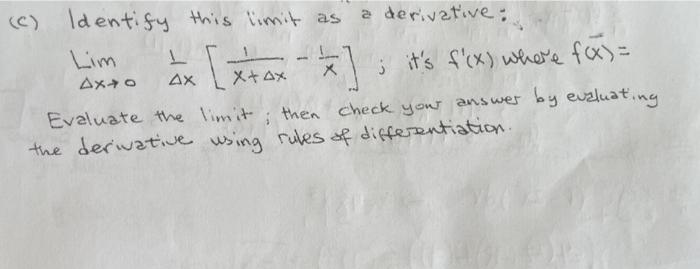 (c) Identify this limit as a derivative:
Lim Δx→0 1/Δx [ 1/(x+Δx) - 1/x ] ; it's f'(x) where f(x) =
Evaluate the limit ; then check your answer by evaluating
the derivative using rules of differentiation.